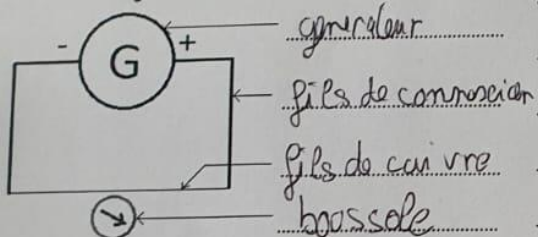 generaleur
- G +
fils de connoscion
fils de cui vre
boossole